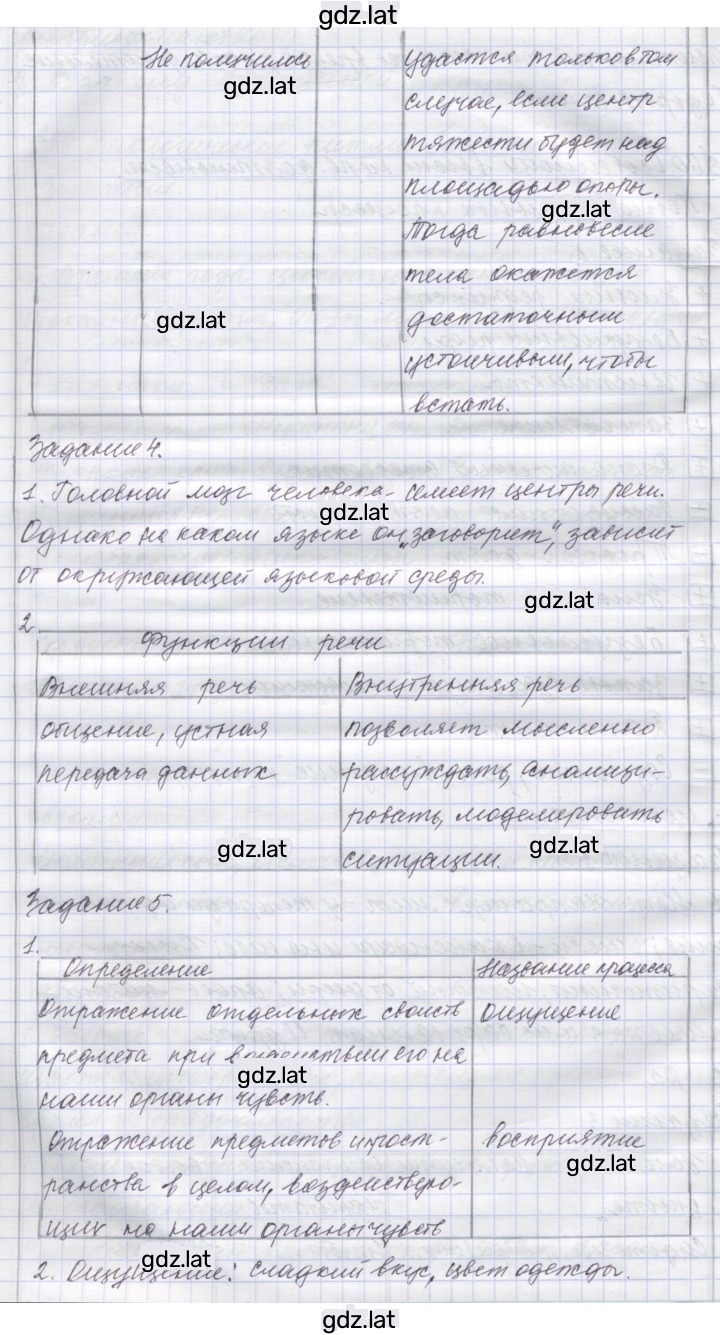 gdz.lat
Не получилось
удастся только в том
gdz.lat
случае, если центр
тяжести будет над
площадью опоры.
gdz.lat
Тогда равновесие
тела окажется
gdz.lat
достаточным
устойчивым, чтобы
встать.
Задание 4.
1. Головной мозг человека имеет центры речи.
gdz.lat
Однако на каком языке он „заговорит“, зависит
от окружающей языковой среды.
gdz.lat
2
Функции речи
Внешняя речь Внутренняя речь
общение, устная позволяет мысленно
передача данных рассуждать, анализи-
ровать, моделировать
gdz.lat gdz.lat
ситуации.
Задание 5.
1.
Определение Название процесса
Отражение отдельных свойств ощущение
предмета при его на
gdz.lat
наши органы чувств.
Отражение предметов и прост- восприятие
gdz.lat
ранства в целом, воздействую-
щих на наши органы чувств
gdz.lat
2. Ощущение: сладкий вкус, цвет одежды.
gdz.lat